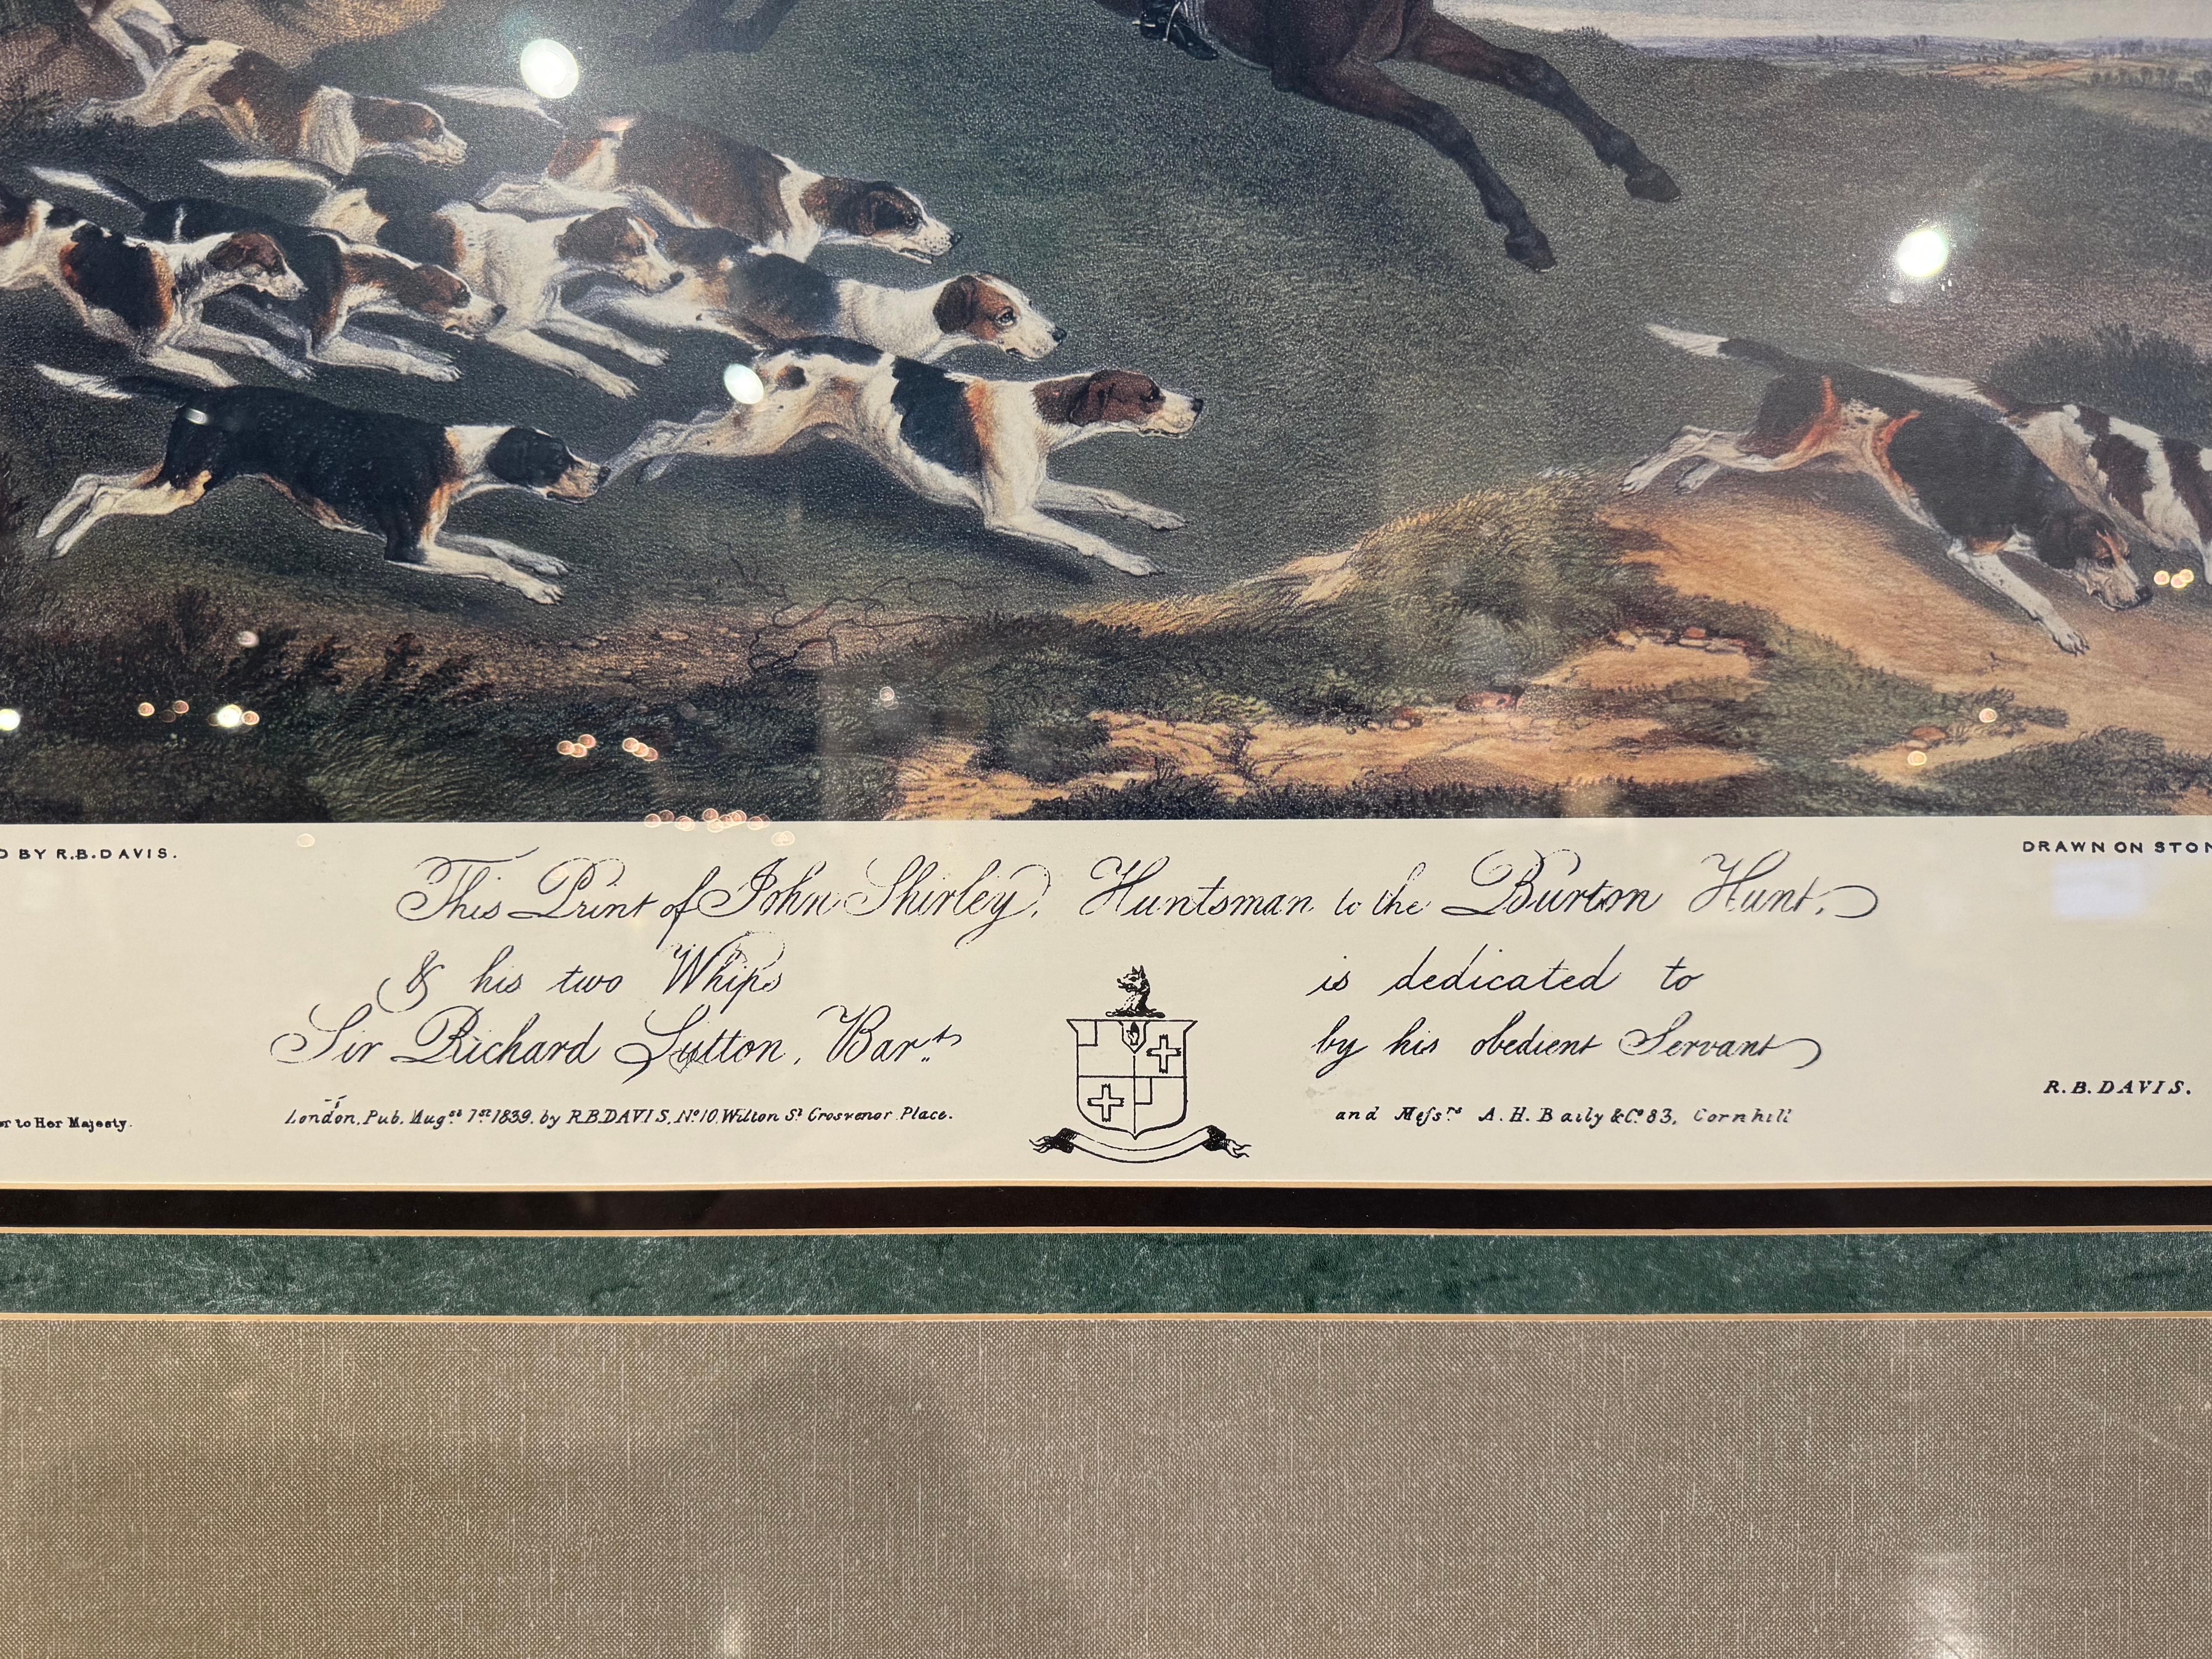 D BY R.B.DAVIS.
DRAWN ON STON
This Print of John Shirley, Huntsman to the Burton Hunt,
& his two Whips is dedicated to
Sir Richard Sutton, Barᵗ. by his obedient Servant
R.B.DAVIS.
er to Her Majesty.
London, Pub. Augˢᵗ 1ˢᵗ 1839, by R.B.DAVIS, Nº10 Wilton Sᵗ Grosvenor Place. and Meſsʳˢ A.H.Baily & Cº 83, Cornhill